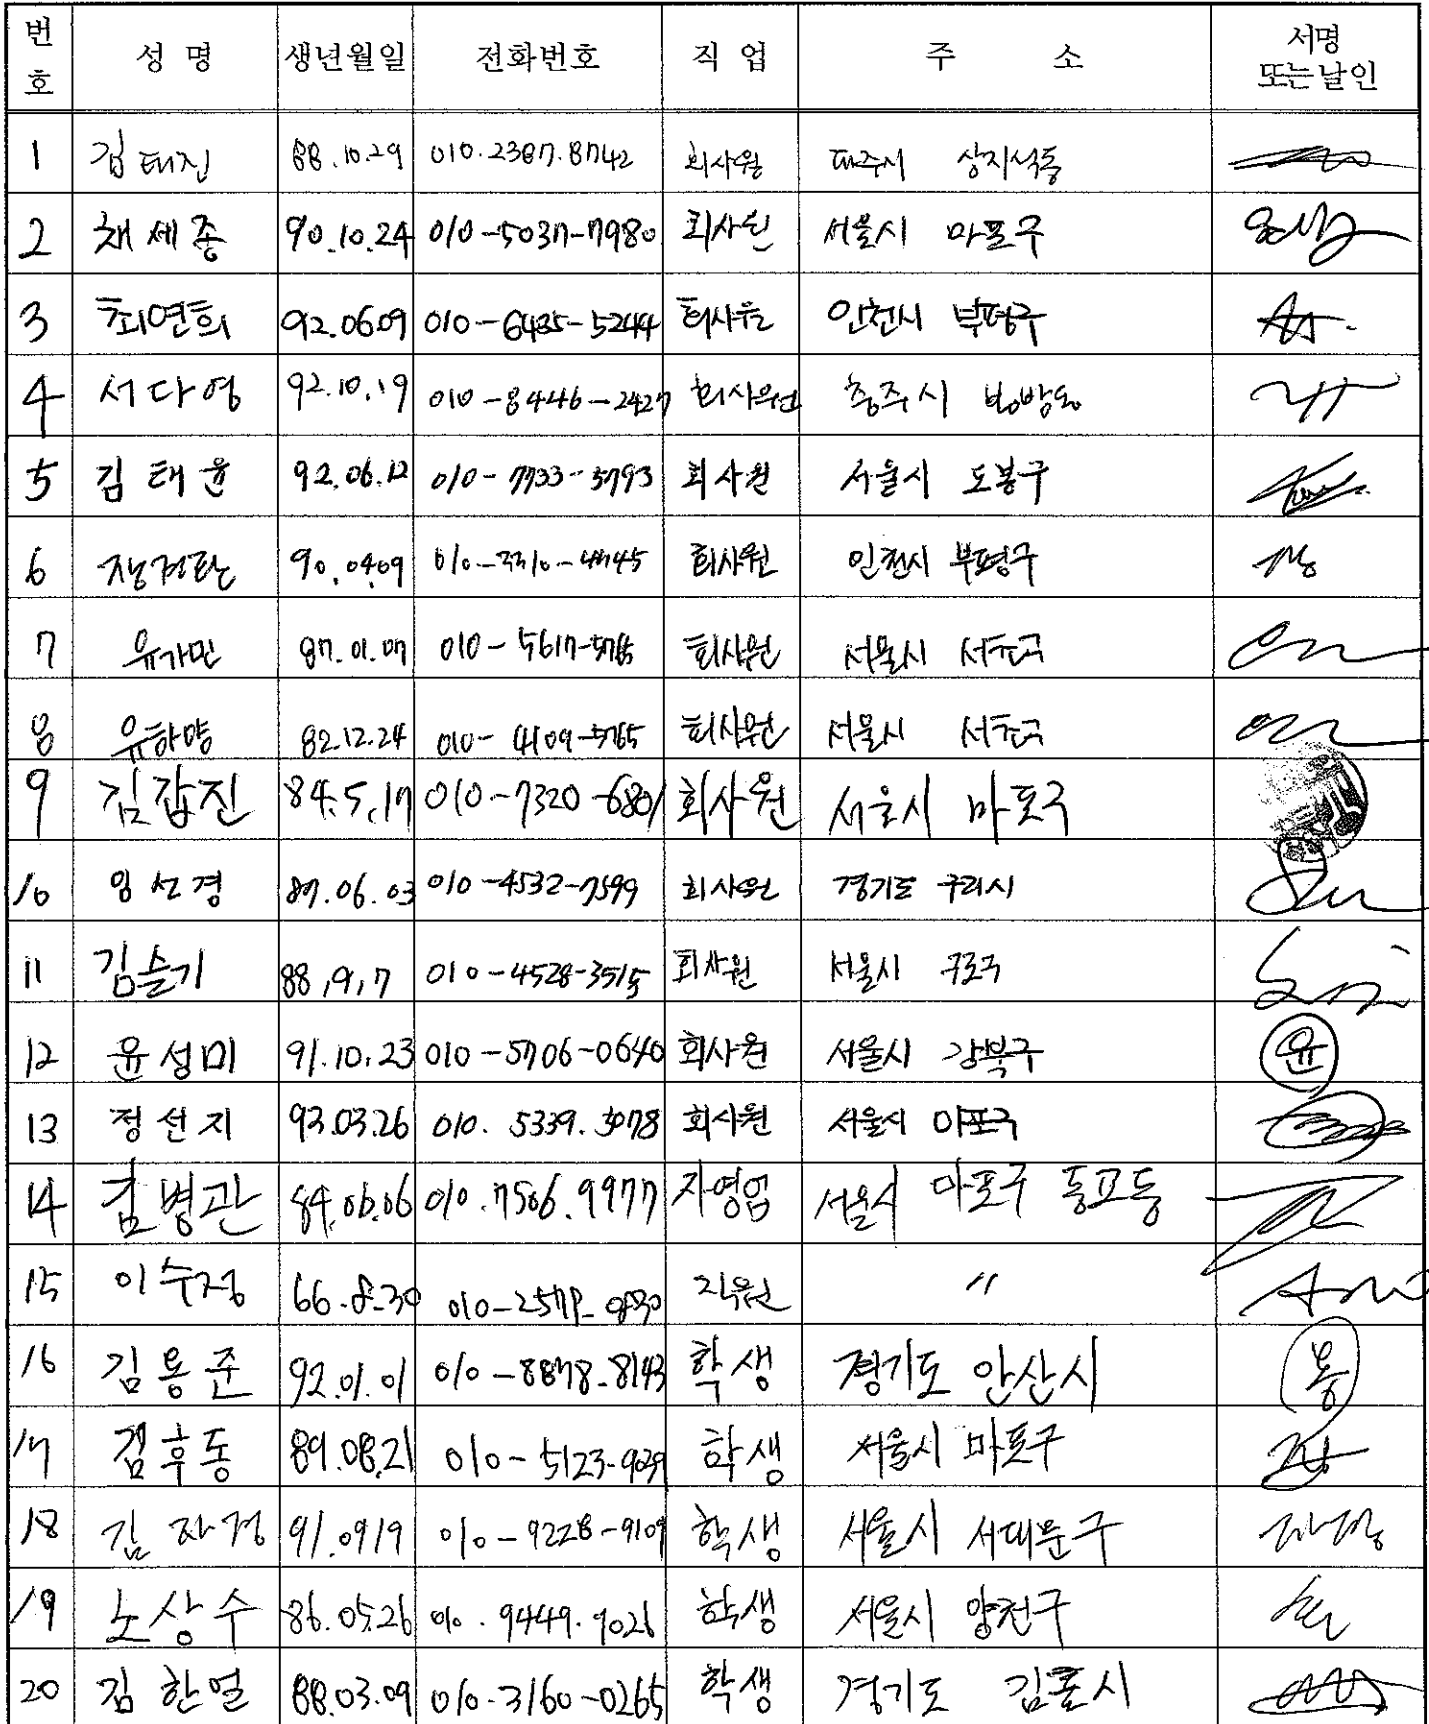 번호 성 명 생년월일 전화번호 직 업 주 소 서명 또는날인
1 김태진 88.10.29 010.2387.8742 회사원 파주시 상지석동
2 채세종 90.10.24 010-5037-7980 회사원 서울시 마포구
3 최연희 92.06.09 010-6435-5244 회사원 인천시 부평구
4 서다영 92.10.19 010-8446-2427 회사원 충주시 봉방동
5 김태윤 92.06.12 010-7733-5793 회사원 서울시 도봉구
6 90.04.09 회사원 인천시 부평구
7 유가민 87.01.07 회사원 서울시 서초구
8 82.12.24 010-4109-5765 회사원 서울시 서초구
9 김갑진 84.5.17 010-7320-6801 회사원 서울시 마포구
10 임선경 87.06.03 010-4532-7599 회사원 경기도 구리시
11 김슬기 88,9,7 010-4528-3515 회사원 서울시 구로구
12 윤성미 91.10.23 010-5706-0640 회사원 서울시 강북구 윤
13 정선지 93.03.26 010. 5339. 3078 회사원 서울시 마포구
14 김병관 84.06.06 010.7506.9977 자영업 서울시 마포구 동교동
15 이수정 66.8.30 직원 〃
16 김용준 92.01.01 010-8878-8143 학생 경기도 안산시 용
17 김후동 89.08.21 010-5123-9029 학생 서울시 마포구
18 김자경 91.0919 010-9228-9109 학생 서울시 서대문구
19 노상수 86.05.26 010.9449.9026 학생 서울시 양천구
20 김한얼 88.03.09 010-3160-0265 학생 경기도 김포시